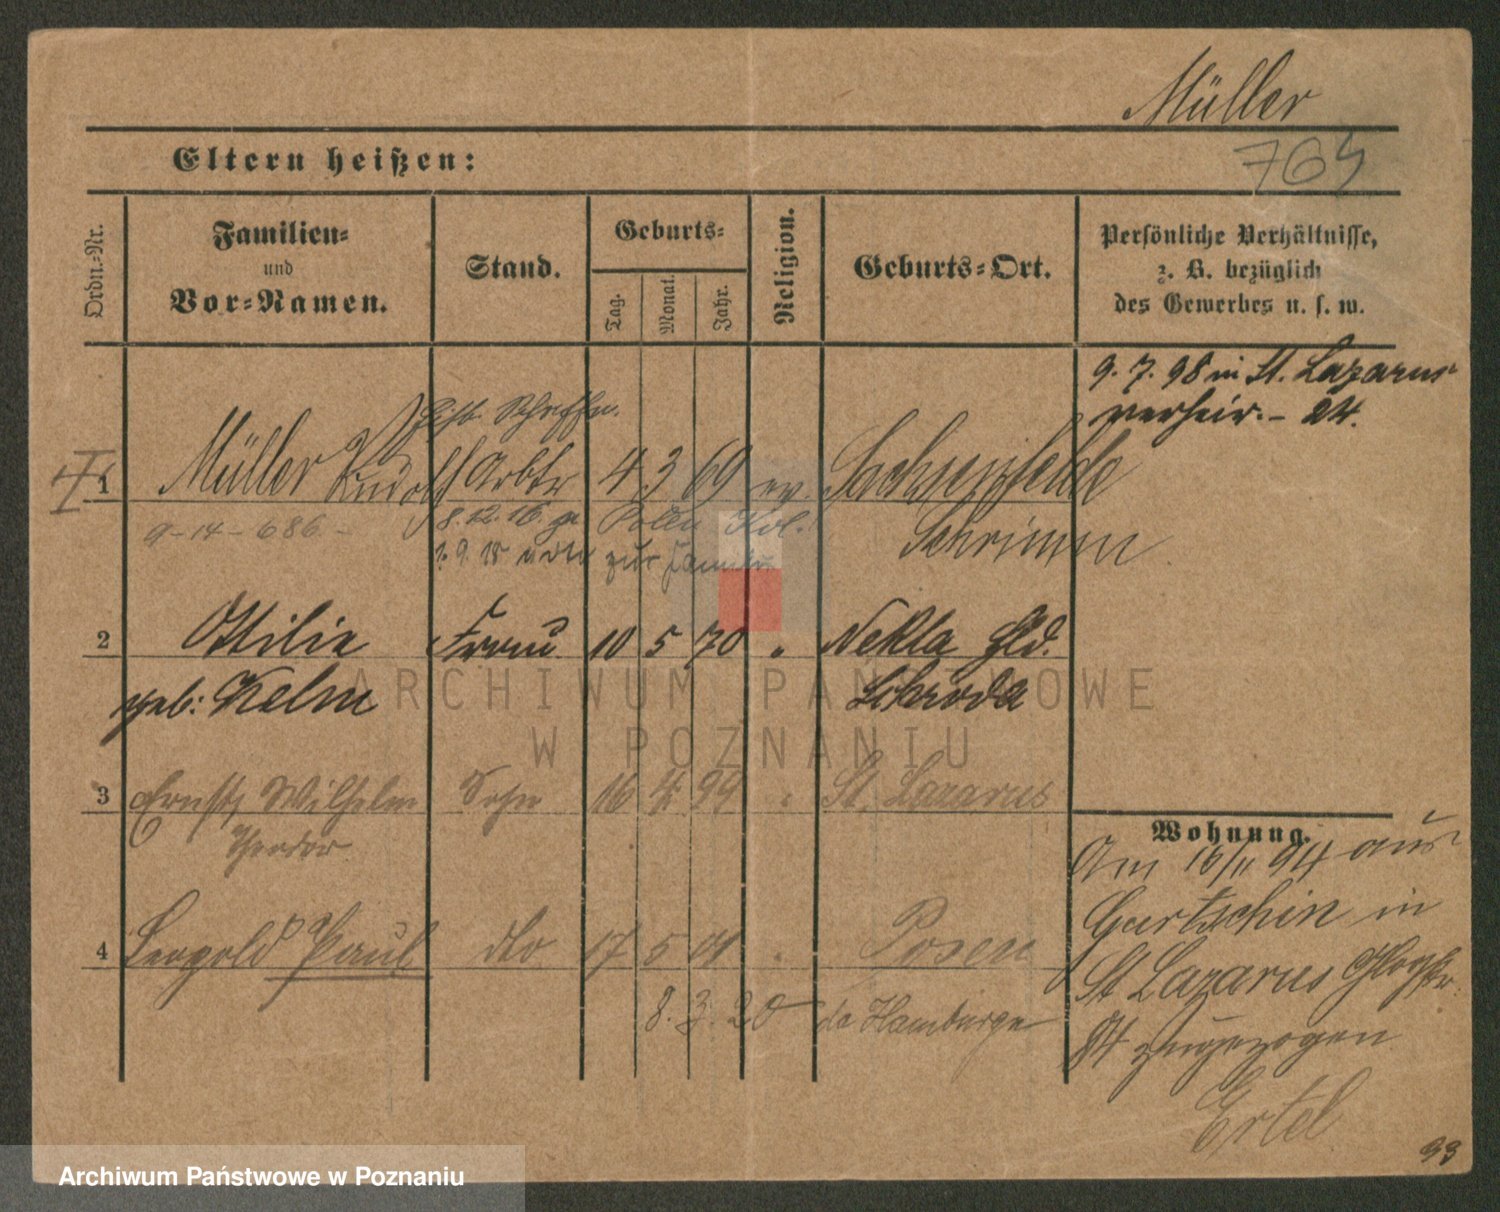 Müller
Eltern heißen:
764
Ordn.-Nr.
Familien-
und
Vor-Namen.
Stand.
Geburts-
Tag.
Monat.
Jahr.
Religion.
Geburts-Ort.
Persönliche Verhältnisse,
z. B. bezüglich
des Gewerbes u. s. w.
9. 7. 98 in St. Lazarus
verheir. - 24.
1 Müller Rudolf Arbtr 4 3 69 ev.
9-14-686-
8.12.16
Schrimm
1. 9. 18 zur Familie
2 Ottilie Frau 10 5 70 " Nekla Hld.
geb: Kelm Schroda
3 Ernst, Wilhelm Sohn 16 4 99 " St. Lazarus
Theodor
4 Leopold Paul dto 17 5 01 " Posen
8. 3. 20 Hamburg
Wohnung.
Am 16/11 94 aus
Gurtschin in
St Lazarus Glogstr.
84 zugezogen
Ertel
93
ARCHIWUM PAŃSTWOWE
W POZNANIU
Archiwum Państwowe w Poznaniu